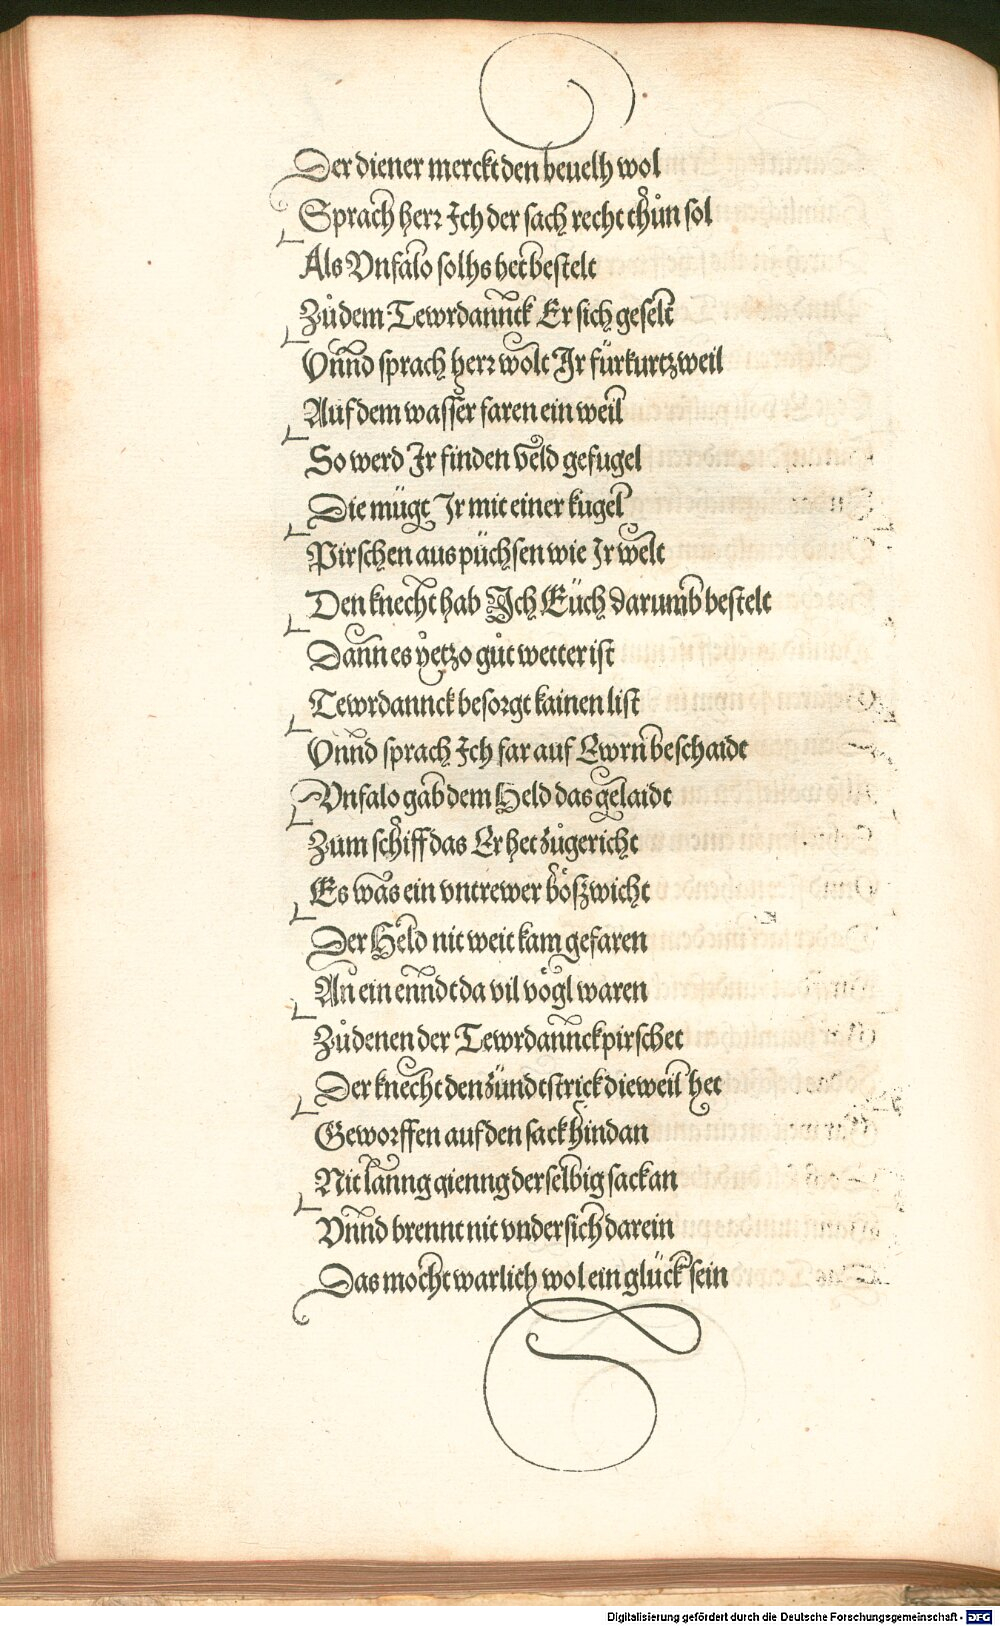 Der diener merckt den beuelh wol
Sprach herr Ich der sach recht thůn sol
Als Vnfalo solhs het bestelt
Zů dem Tewrdannck Er sich geselt
Vnnd sprach herr wolt Ir für kurtzweil
Auf dem wasser faren ein weil
So werd Ir finden veld gefugel
Die mügt Ir mit einer kugel
Pirschen aus püchsen wie Ir welt
Den knecht hab Ich Eüch darumb bestelt
Dann es yetzo gůt wetter ist
Tewrdannck besorgt kainen list
Vnnd sprach Ich far auf Ewrn beschaidt
Vnfalo gab dem Held das gelaidt
Zum schiff das Er het zůgericht
Es was ein vntrewer bößwicht
Der Held nit weit kam gefaren
An ein enndt da vil vögl waren
Zů denen der Tewrdannck pirschet
Der knecht den zündtstrick dieweil het
Geworffen auf den sack hindan
Nit lanng gienng derselbig sack an
Vnnd brennt nit vndersich darein
Das mocht warlich wol ein glück sein
Digitalisierung gefördert durch die Deutsche Forschungsgemeinschaft - DFG